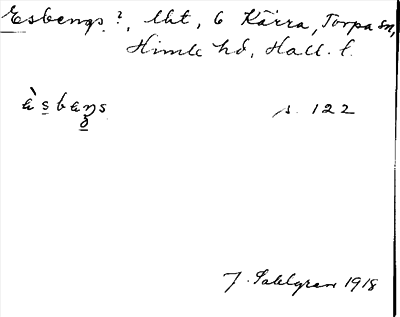 Esbengs?, lht, 6 Kärra, Torpa sn,
Himle hd, Hall. l.
àsbaŋs s. 122
J. Sahlgren 1918